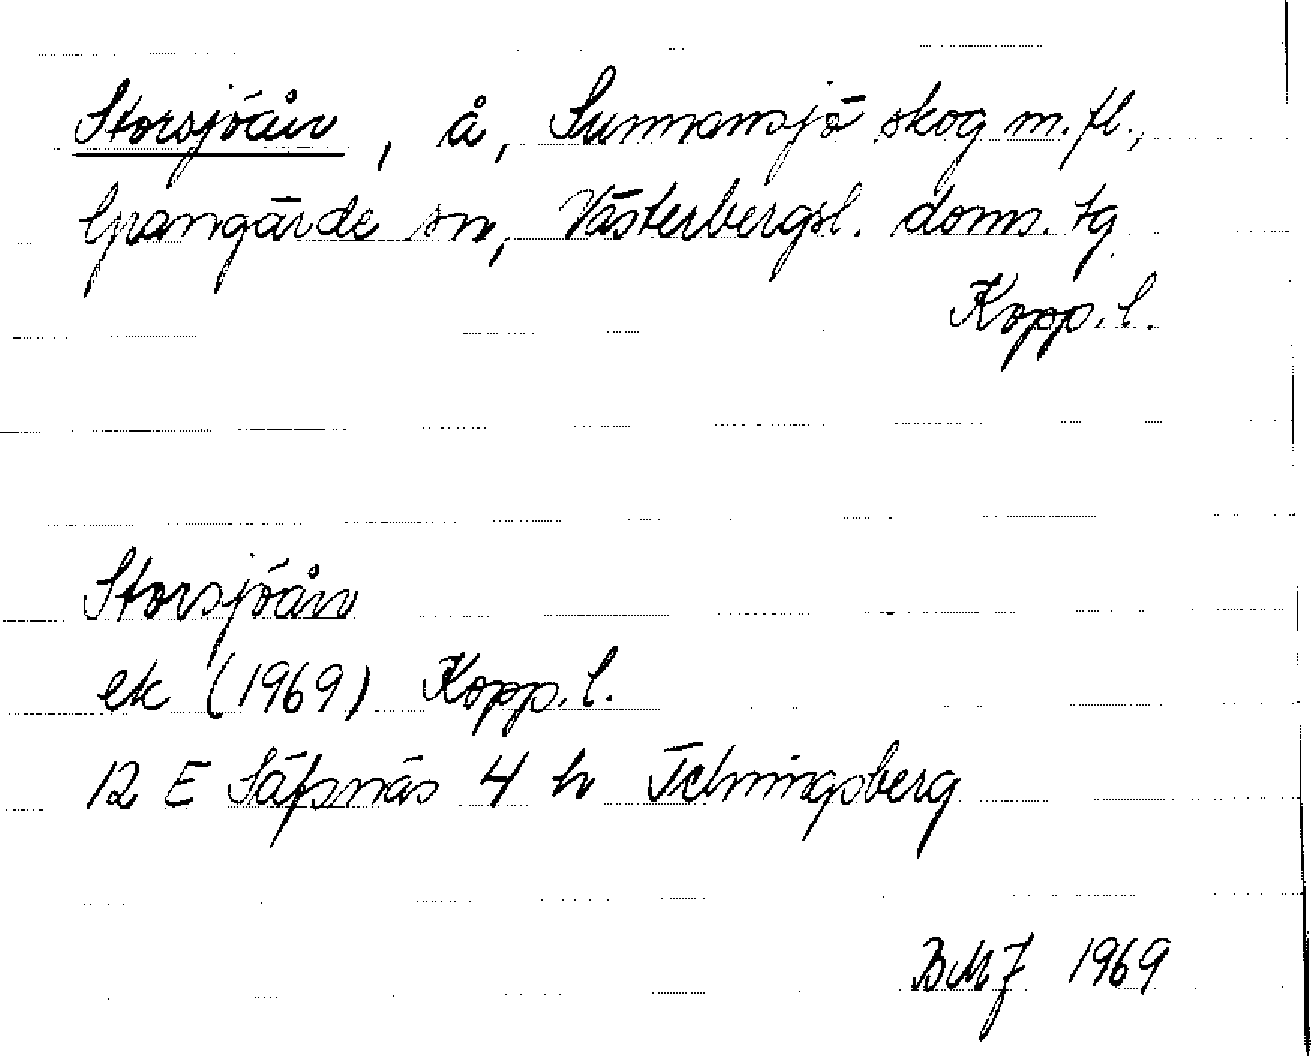 Storsjöån, å, Sunnansjö skog m. fl.,
Grangärde sn, Västerbergsl. doms. tg
Kopp. l.
Storsjöån
ek (1969) Kopp. l.
12 E Säfsnäs 4 h Telningsberg
BMJ 1969